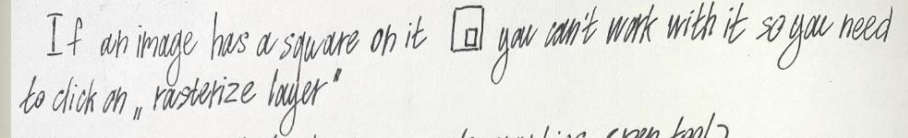 If an image has a square on it you can't work with it so you need
to click on „rasterize layer"
crop tool?